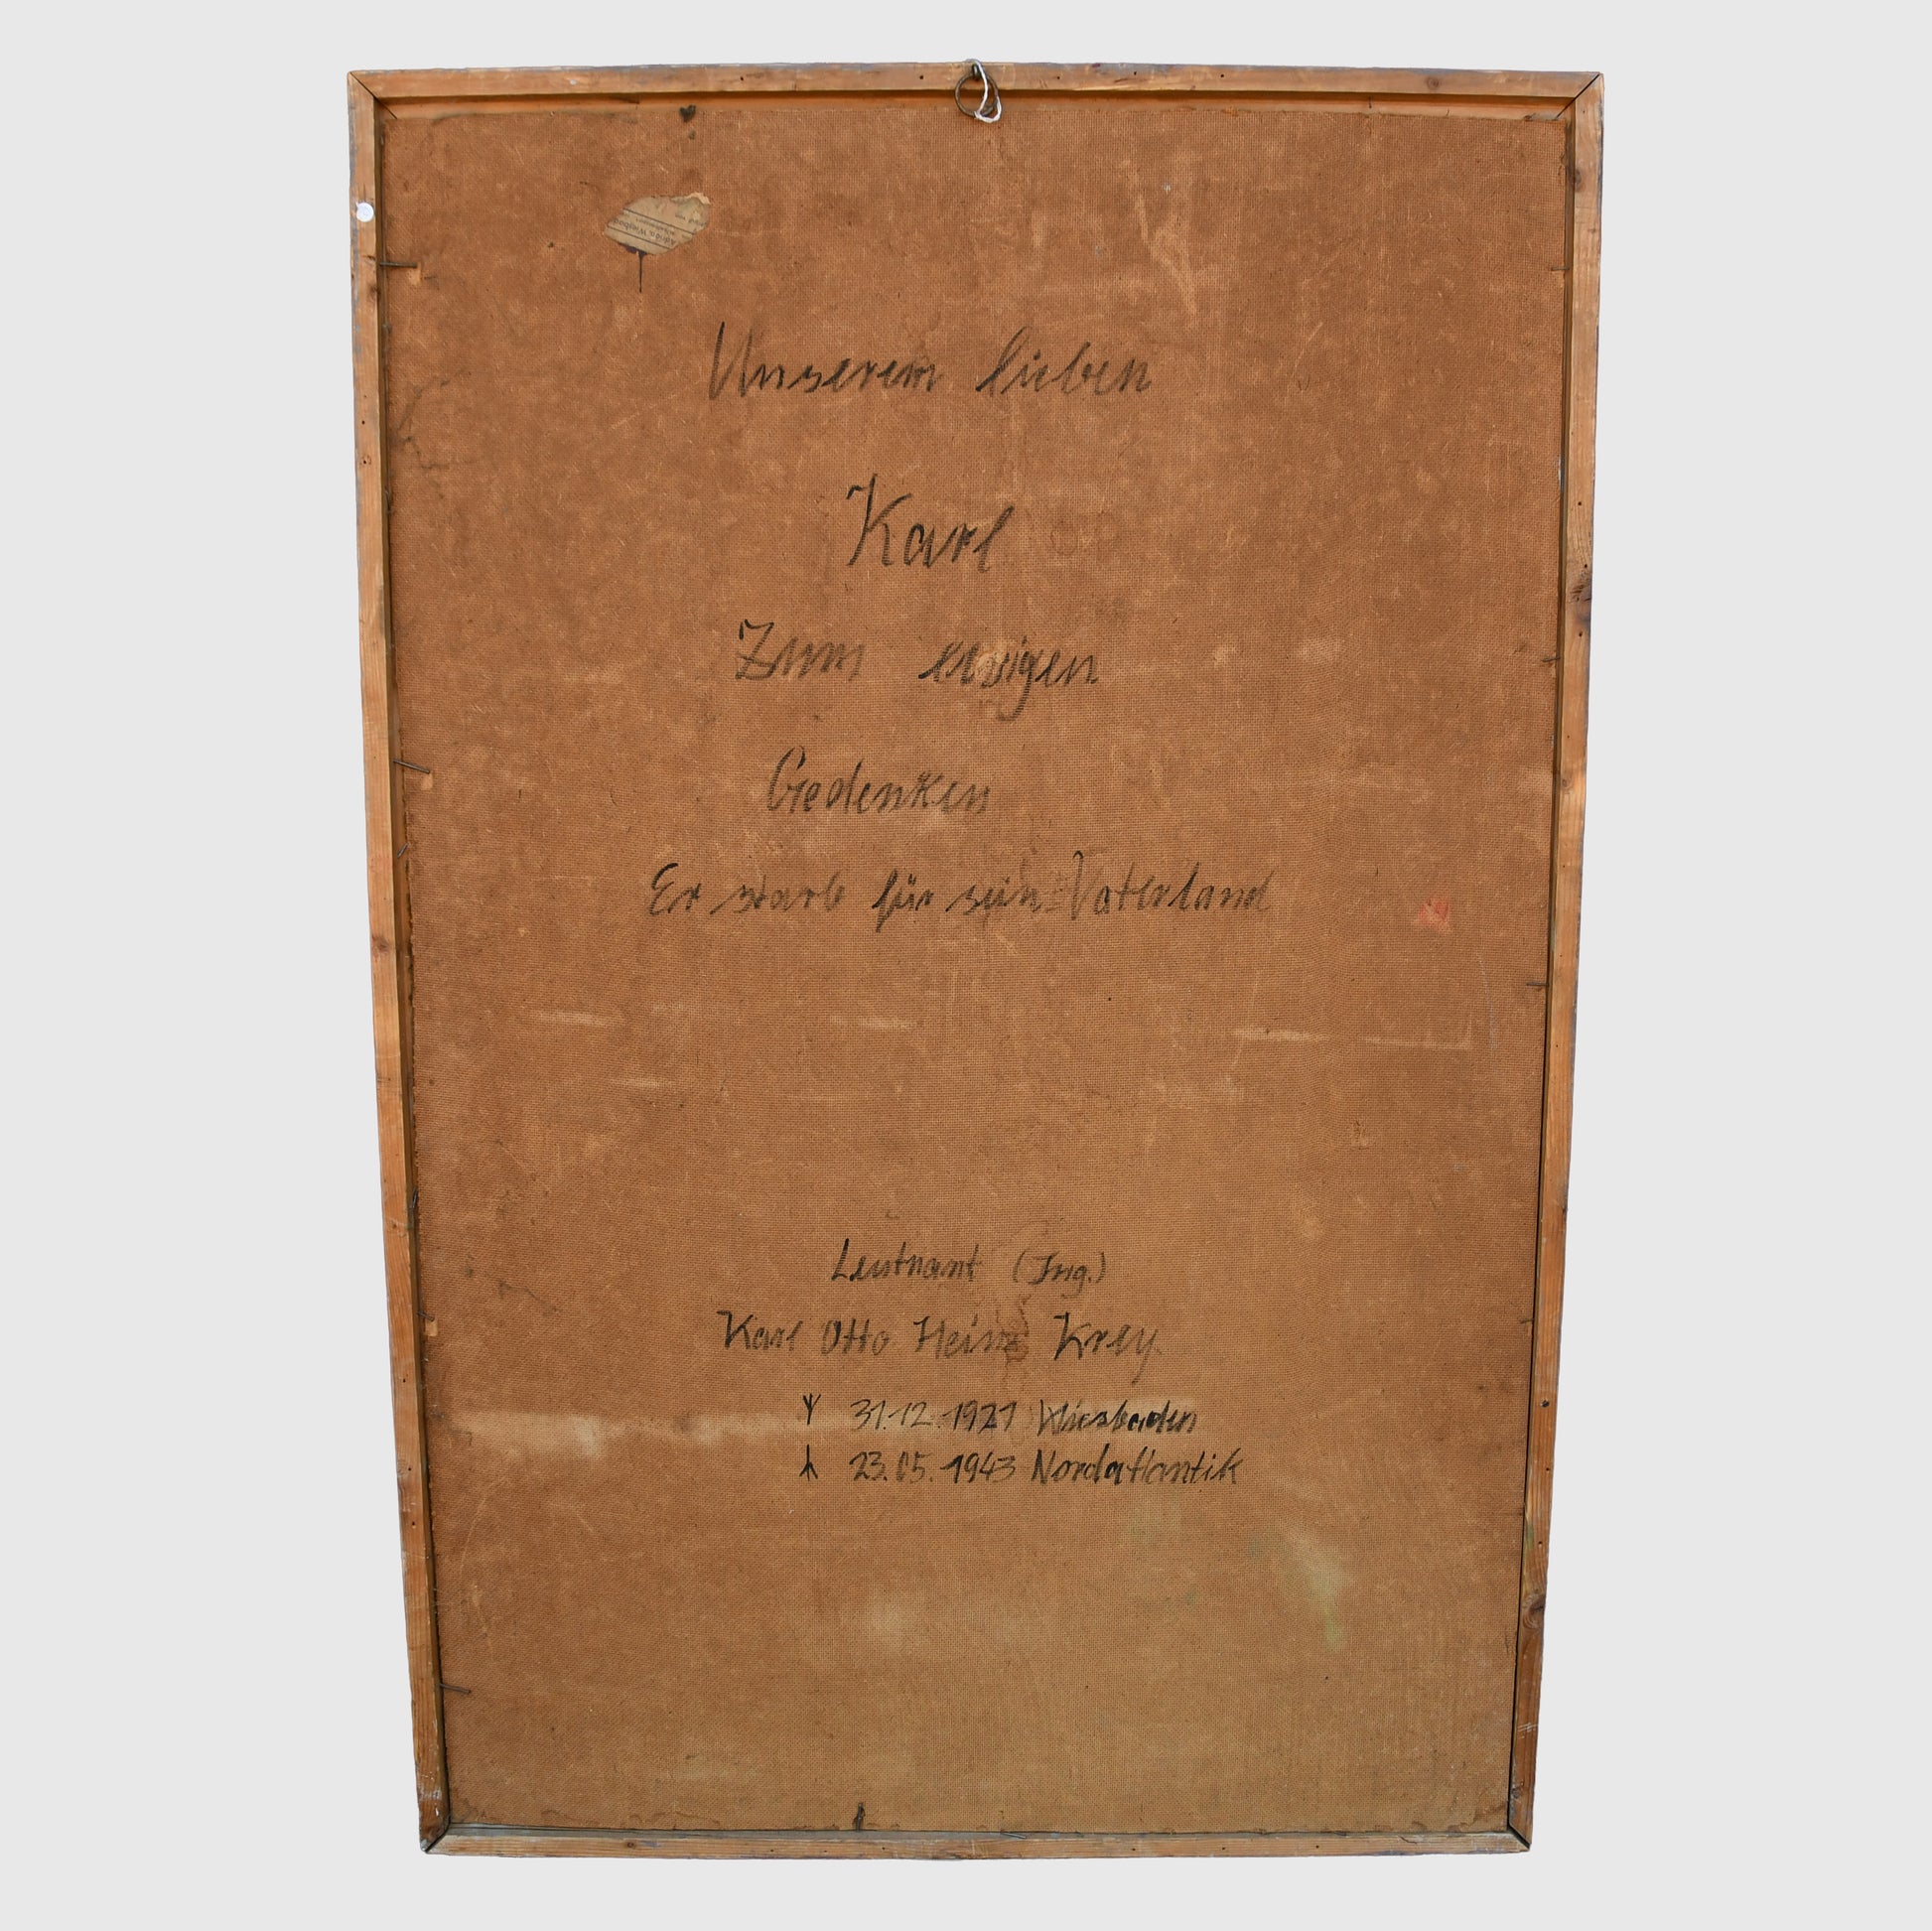 Unserem lieben
Karl
Zum ewigen
Gedenken
Er starb für sein Vaterland
Leutnant (Ing.)
Karl Otto Heinz Krey.
ᛉ 31.12.1921 Wiesbaden
ᛣ 23.05.1943 Nordatlantik